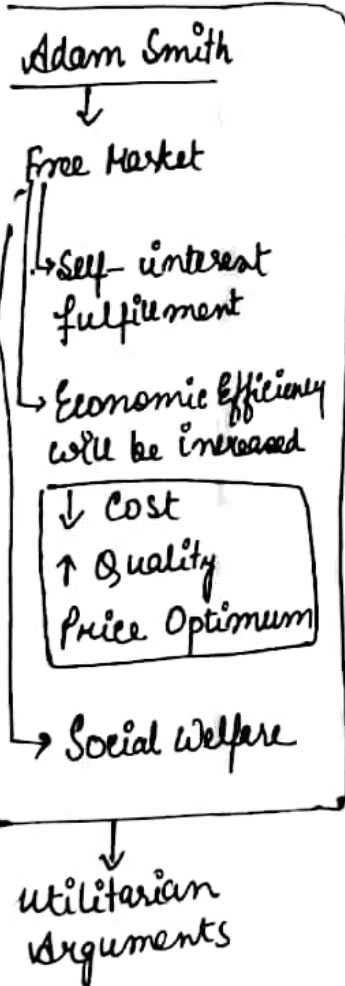 Adam Smith
↓
Free Market
→ Self-interest
fulfillment
→ Economic Efficiency
will be increased
↓ Cost
↑ Quality
Price Optimum
→ Social Welfare
↓
Utilitarian
Arguments